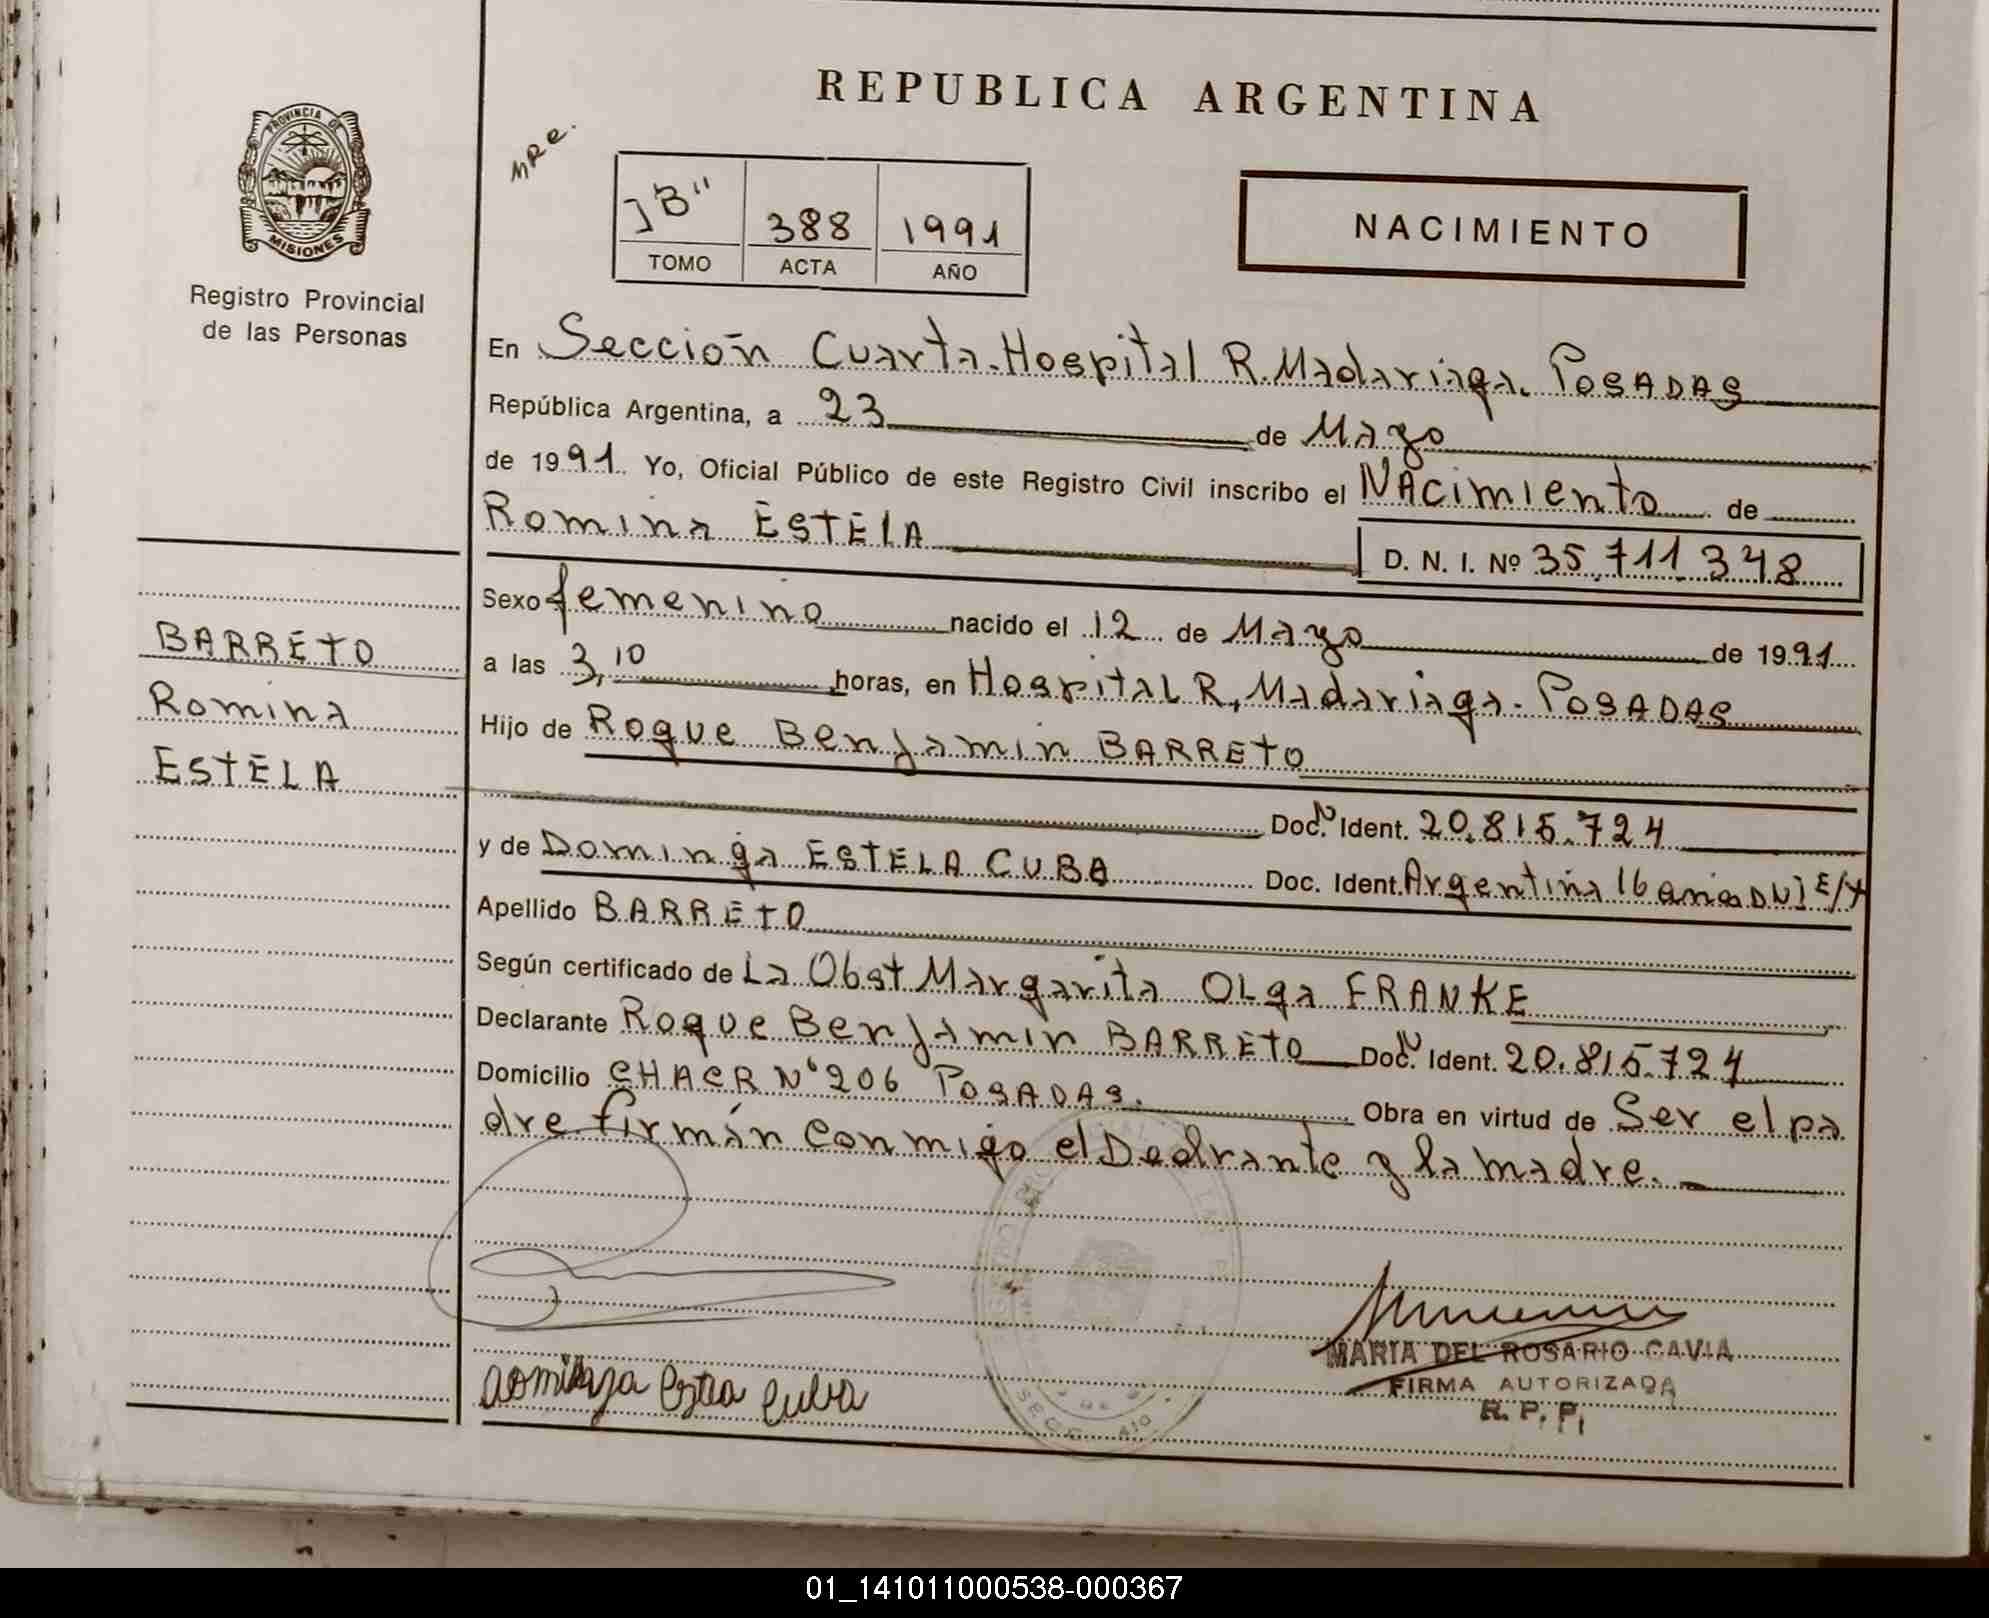 REPUBLICA ARGENTINA
PROVINCIA DE
MISIONES
Registro Provincial
de las Personas
MRe.
"B" 388 1991
TOMO ACTA AÑO
NACIMIENTO
En Sección Cuarta. Hospital R. Madariaga. POSADAS
República Argentina, a 23 de Mayo
de 1991. Yo, Oficial Público de este Registro Civil inscribo el NAcimiento de
Romina ESTELA D. N. I. Nº 35.711.348
Sexo femenino nacido el 12 de Mayo de 1991
a las 3,10 horas, en Hospital R. Madariaga. POSADAS
Hijo de Roque Benjamin BARRETO
Doc. Ident. 20.815.724
y de Dominga ESTELA CUBA Doc. Ident. Argentina 16 años DNI E/t
Apellido BARRETO
Según certificado de La Obst Margarita OLga FRANKE
Declarante Roque Benjamin BARRETO Doc. Ident. 20.815.724
Domicilio CHACR Nº 206 POSADAS. Obra en virtud de Ser el pa
dre. firmán conmigo el Declrante y la madre.
BARRETO
Romina
ESTELA
Dominga Estela Cuba
MARIA DEL ROSARIO CAVIA
FIRMA AUTORIZADA
R. P. P.
01_141011000538-000367